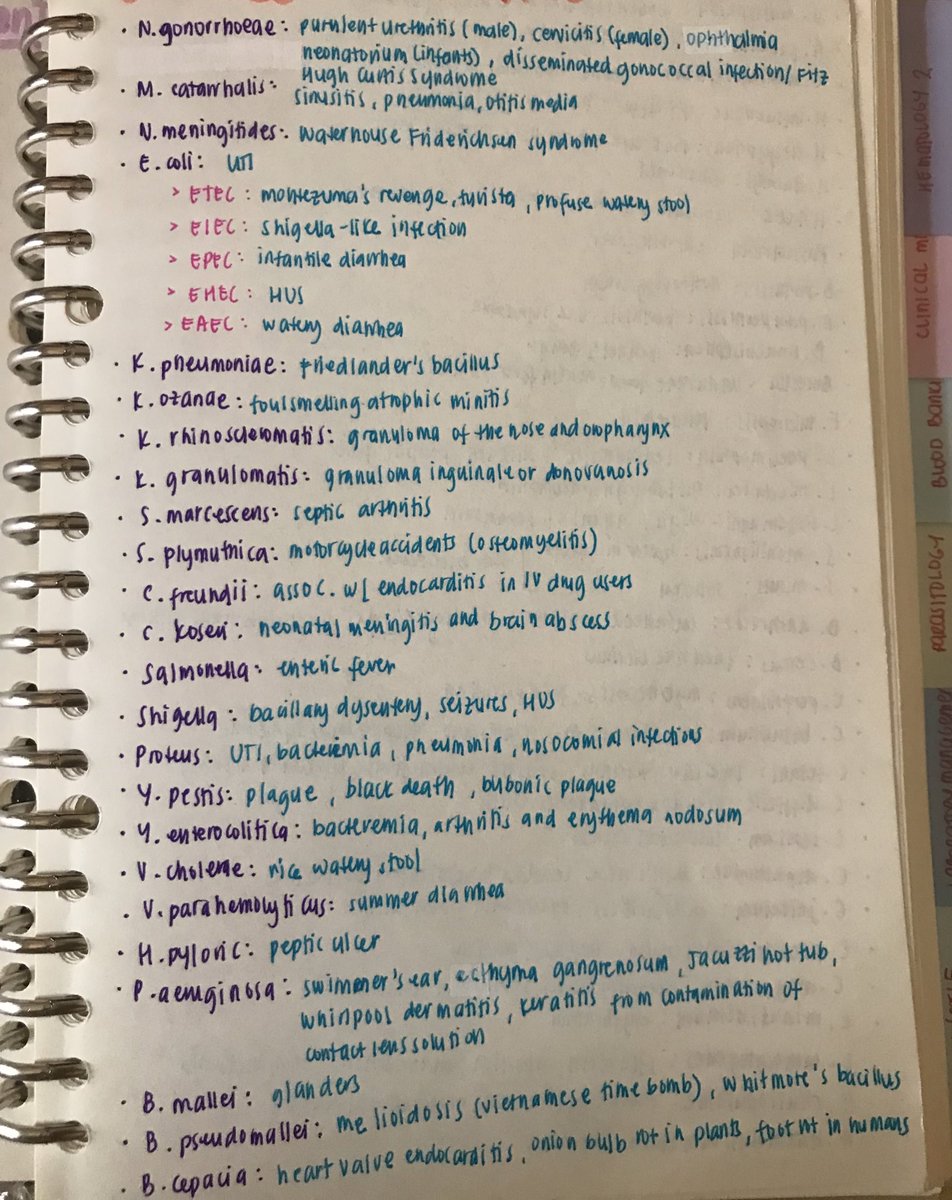 • N. gonorrhoeae: purulent urethritis (male), cervicitis (female), ophthalmia
neonatorium (infants), disseminated gonococcal infection / Fitz
Hugh Curtis Syndrome
• M. catarrhalis: sinusitis, pneumonia, otitis media
• N. meningitides: Waterhouse Friderichsen syndrome
• E. coli: UTI
> ETEC: montezuma's revenge, turista, profuse watery stool
> EIEC: shigella-like infection
> EPEC: infantile diarrhea
> EHEC: HUS
> EAEC: watery diarrhea
• K. pneumoniae: friedlander's bacillus
• K. ozanae: foulsmelling atrophic rhinitis
• K. rhinoscleromatis: granuloma of the nose and oropharynx
• K. granulomatis: granuloma inguinale or donovanosis
• S. marcescens: septic arthritis
• S. plymuthica: motorcycle accidents (osteomyelitis)
• C. freungii: assoc. w/ endocarditis in IV drug users
• C. koseri: neonatal meningitis and brain abscess
• Salmonella: enteric fever
• Shigella: bacillary dysentery, seizures, HUS
• Proteus: UTI, bacteremia, pneumonia, nosocomial infections
• Y. pestis: plague, black death, bubonic plague
• Y. enterocolitica: bacteremia, arthritis and erythema nodosum
• V. cholerae: rice watery stool
• V. parahemolyticus: summer diarrhea
• H. pyloric: peptic ulcer
• P. aeruginosa: swimmer's ear, ecthyma gangrenosum, Jacuzzi hot tub,
whirlpool dermatitis, keratitis from contamination of
contact lens solution
• B. mallei: glanders
• B. pseudomallei: melioidosis (vietnamese time bomb), whitmore's bacillus
• B. cepacia: heart valve endocarditis, onion bulb rot in plants, foot rot in humans
HEMATOLOGY 2
CLINICAL M
BLOOD BANK
PARASITOLOGY